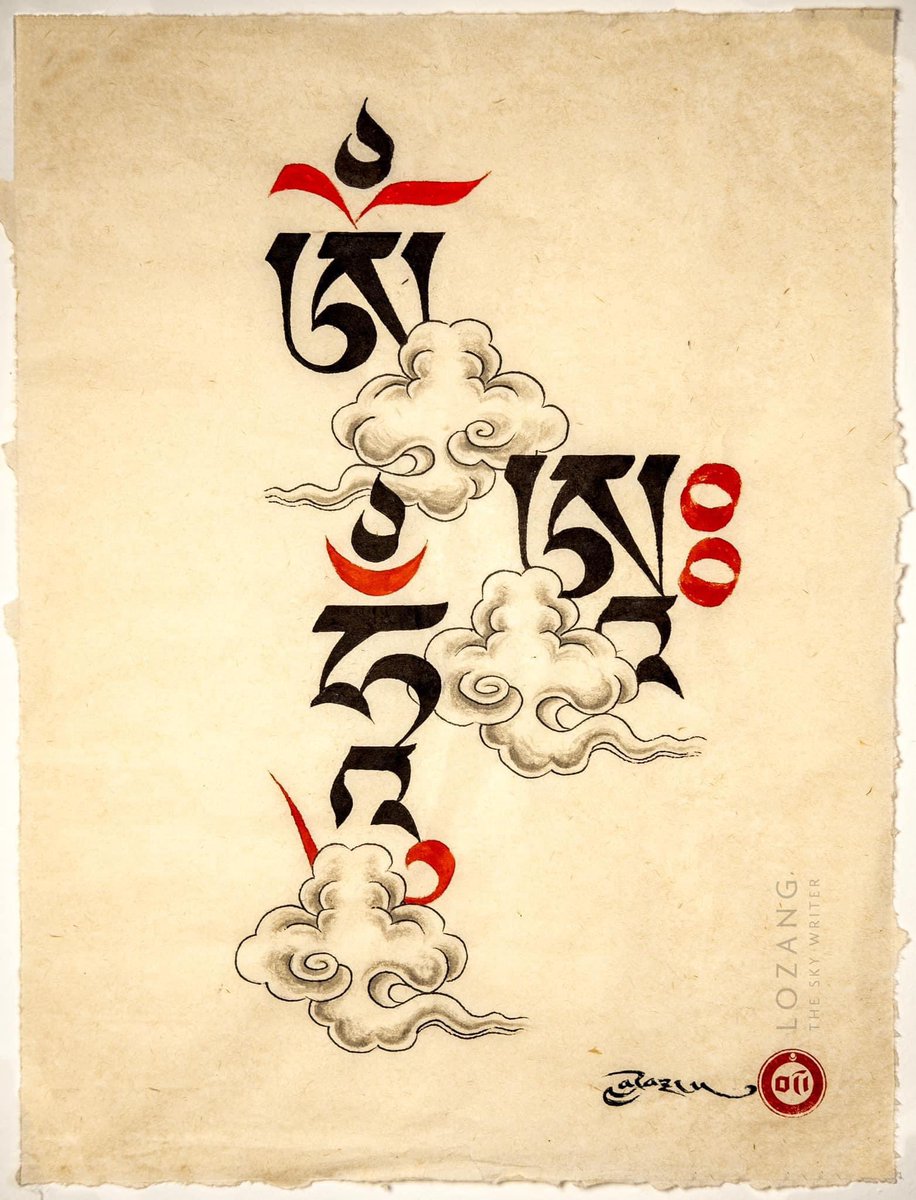 ཨོཾ
ཨཱཿ
ཧཱུྃ
LOZANG
THE SKY WRITER